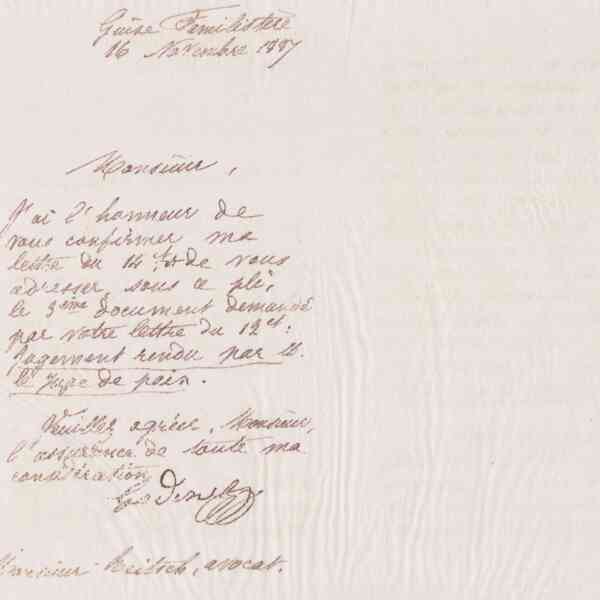 Guise Familistère
16 Novembre 1887
Monsieur,
J'ai l'honneur de
vous confirmer ma
lettre du 14 ct & de vous
adresser, sous ce pli,
le 3ème document demandé
par votre lettre du 12 ct:
Jugement rendu par M.
le Juge de paix.
Veuillez agréer, Monsieur,
l'assurance de toute ma
considération
Monsieur avocat.